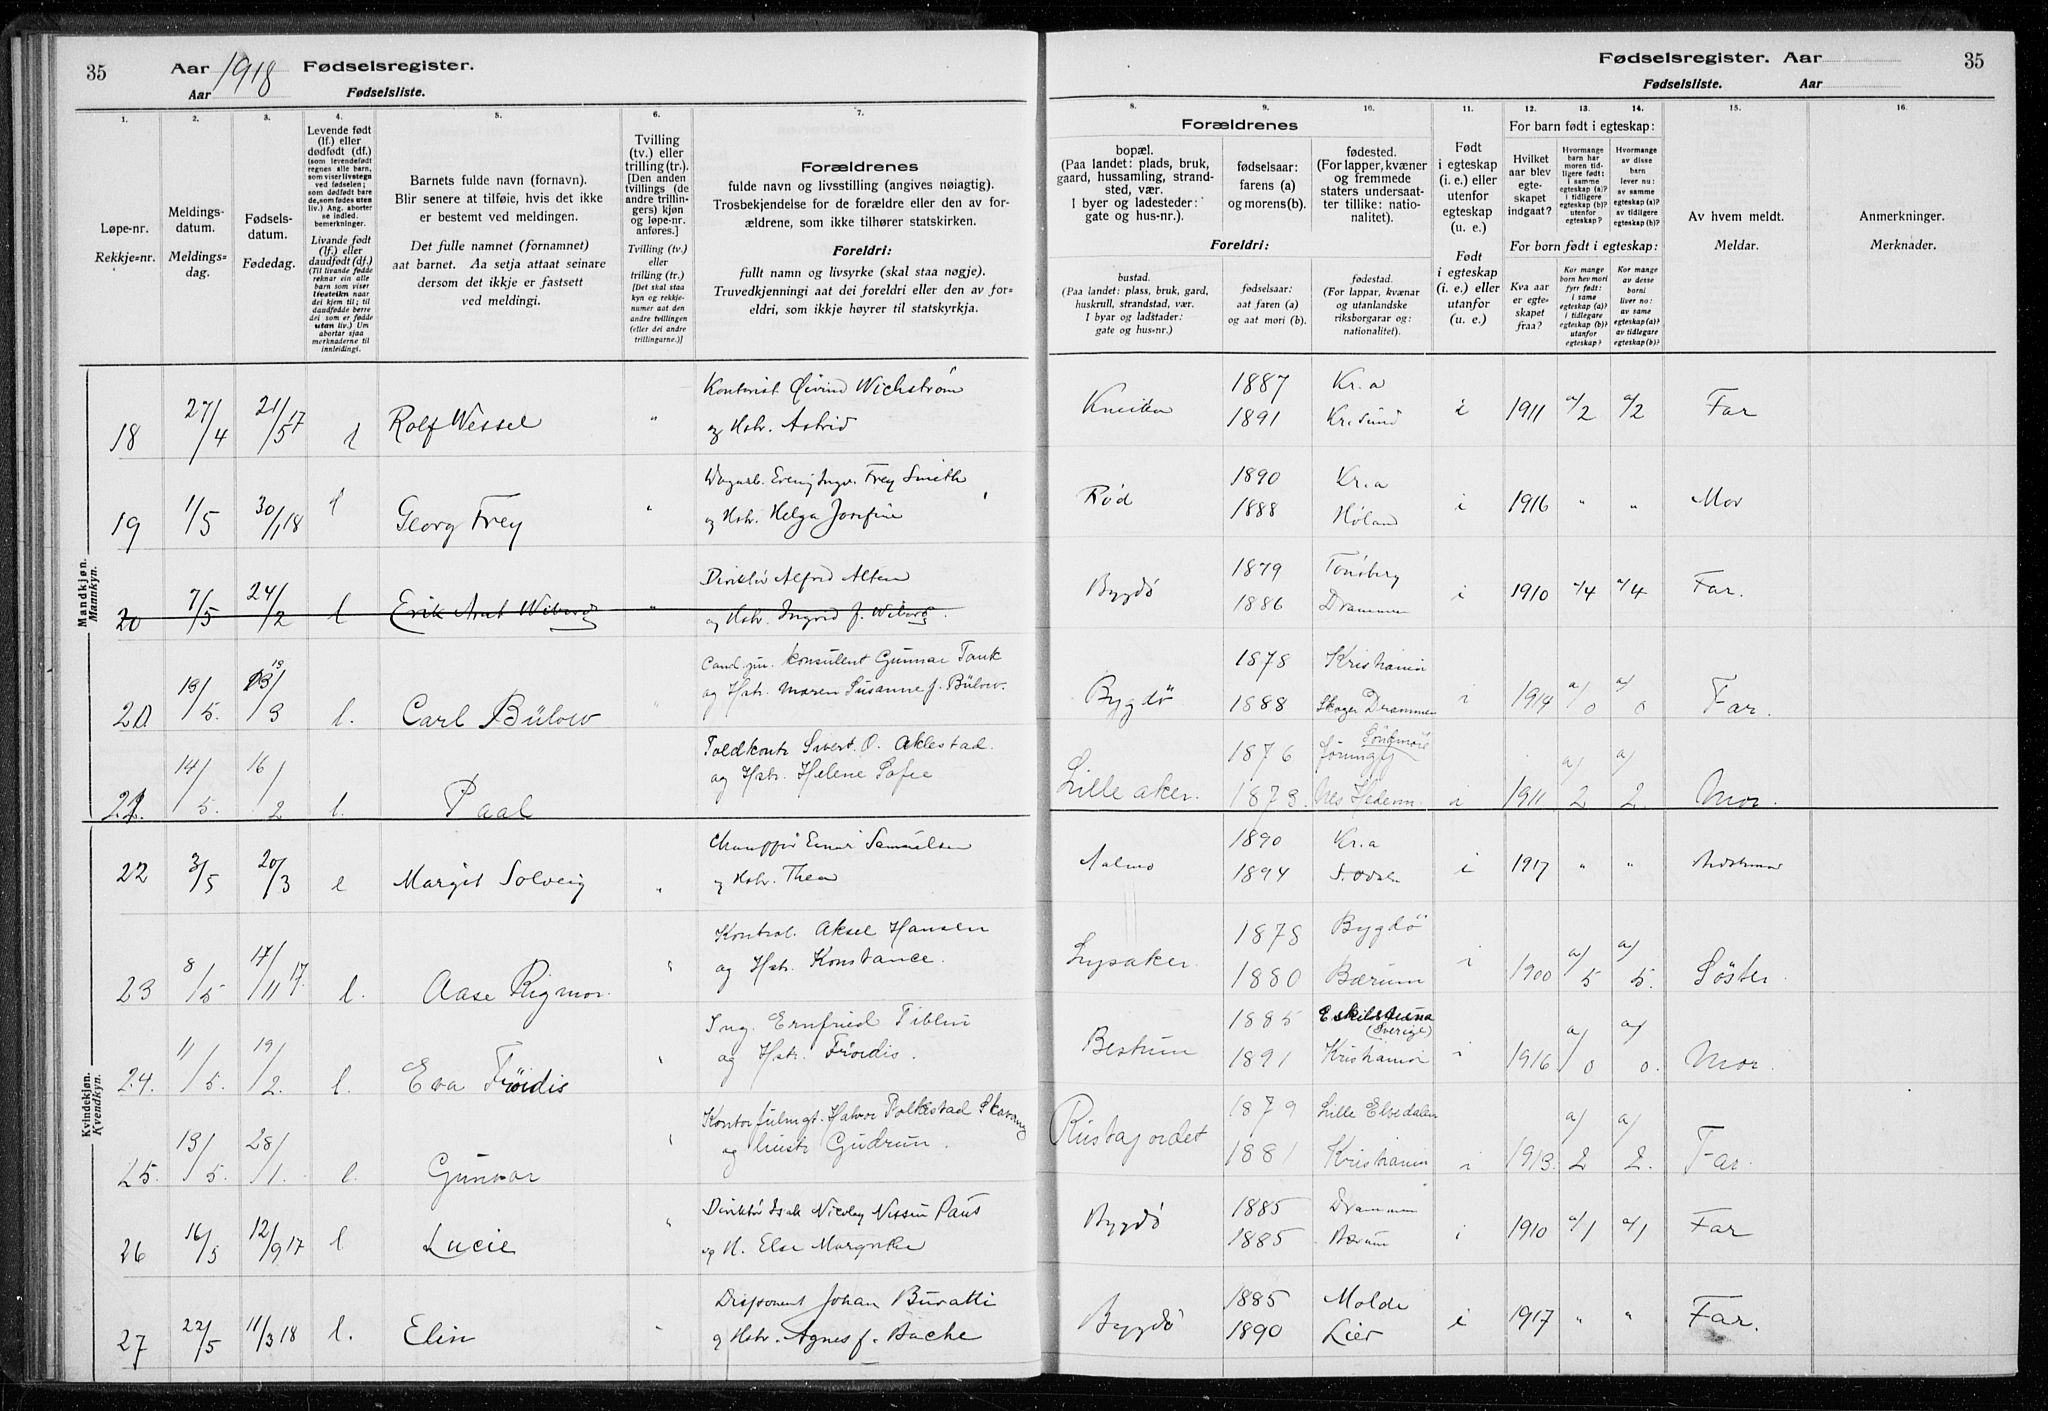 35
Aar 1918 Fødselsregister.
Aar Fødselsliste.
Fødselsregister. Aar
35
Fødselsliste. Aar
1.
Løpe-nr.
Rekkje-nr.
2.
Meldings-
datum.
Meldings-
dag.
3.
Fødsels-
datum.
Fødedag.
4.
Levende født
(lf.) eller
dødfødt (df.)
(som levendefødt
regnes alle barn,
som viser livstegn
ved fødselen;
som dødfødt bare
de, som fødes uten
liv.) Ang. aborter
se indled.
bemerkninger.
Livande født
(lf.) eller
daudfødt (df.)
(Til livande fødde
reknar ein alle
barn som viser
livsteikn naar
dei kjem til; til
daudfødde berre
dei som er fødde
utan liv.) Um
abortar sjaa
merknaderne til
innleidingi.
5.
Barnets fulde navn (fornavn).
Blir senere at tilføie, hvis det ikke
er bestemt ved meldingen.
Det fulle namnet (fornamnet)
aat barnet. Aa setja attaat seinare
dersom det ikkje er fastsett
ved meldingi.
6.
Tvilling
(tv.) eller
trilling (tr.).
[Den anden
tvillings (de
andre trillin-
gers) kjøn
og løpe-nr.
anføres.]
Tvilling (tv.)
eller
trilling (tr.)
[Det skal staa
kyn og rekkje-
numer aat den
andre tvillingen
(eller dei andre
trillingarne.)]
7.
Forældrenes
fulde navn og livsstilling (angives nøiagtig).
Trosbekjendelse for de forældre eller den av for-
ældrene, som ikke tilhører statskirken.
Foreldri:
fullt namn og livsyrke (skal staa nøgje).
Truvedkjenningi aat dei foreldri eller den av for-
eldri, som ikkje høyrer til statskyrkja.
Forældrenes
8.
bopæl.
(Paa landet: plads, bruk,
gaard, hussamling, strand-
sted, vær.
I byer og ladesteder:
gate og hus-nr.).
Foreldri:
bustad.
(Paa landet: plass, bruk, gard,
huskrull, strandstad, vær.
I byar og ladstader:
gate og hus-nr.)
9.
fødselsaar:
farens (a)
og morens(b).
fødselsaar:
aat faren (a)
og aat mori (b).
10.
fødested.
(For lapper, kvæner
og fremmede
staters undersaat-
ter tillike: natio-
nalitet).
fødestad.
(For lappar, kvænar
og utanlandske
riksborgarar og:
nationalitet).
11.
Født
i egteskap
(i. e.) eller
utenfor
egteskap
(u. e.)
Født
i egteskap
(i. e.) eller
utanfor
egteskap
(u. e.)
For barn født i egteskap:
12.
Hvilket
aar blev
egte-
skapet
indgaat?
13.
Hvormange
barn har
moren tid-
ligere født:
i samme
egteskap (a)?
i tidligere
egteskap (b)?
utenfor
egteskap?
14.
Hvormange
av disse
barn
lever nu:
av samme
egteskap (a)?
av tidligere
egteskap (b)?
For born født i egteskap:
Kva aar
er egte-
skapet
fraa?
Kor mange
born hev mori
fyrr født:
i same
egteskap (a)?
i tidlegare
egteskap (b)?
utanfor
egteskap?
Kor mange
av desse
borni
liver no:
av same
egteskap (a)?
av tidlegare
egteskap (b)?
15.
Av hvem meldt.
Meldar.
16.
Anmerkninger.
Merknader.
Mandkjøn.
Mannkyn.
18 27/4 21/5 17 l Rolf Wessel " Kontorist Øivind Wichstrøm
og Hstr. Astrid
1887 Kr.a
1891 Kr.sund i 1911 a/2 a/2 Far
19 1/5 30/1 18 l Georg Frey " Frey Smith
og Hstr. Helga Josefine
Rød 1890 Kr.a
1888 Høland i 1916 " " Mor
20 7/5 24/2 l Erik Arnt Wiborg " Direktør Alfred Alten
og Hstr. Ingrid f. Wiborg.
Bygdö 1879 Tønsberg
1886 Drammen i 1910 a/4 a/4 Far.
20. 13/5. 13/3 l. Carl Bülow " Cand. jur. konsulent Gunnar Tank
og Hstr. Maren Susanne f. Bülow.
Bygdö 1878 Kristiania
1888 Skoger Drammen i 1914 a/0 a/0 Far.
21. 14/5. 16/2 l. Paal Toldkontr. Sivert O. Aklestad.
og Hstr. Helene Sofie
Lilleaker. 1876 Søndmøre
1873. Nes Hedem i 1911 a/2 a/2. Mor.
Kvindekjøn.
Kvendkyn.
22 3/5 20/3 l Margit Solveig " Chauffør Einar Samuelsen
og Hstr. Thea
1890 Kr.a
1894 i 1917 " "
23 8/5 17/11 17. l. Aase Rigmor. " Kontrol. Aksel Hansen
og Hstr. Konstance.
Lysaker. 1878 Bygdö
1880 Bærum i 1900 a/5 a/5. Söster.
24. 11/5. 19/2. l. Eva Fröidis " Ing. Ernfried Tiblin
og Hstr. Fröidis.
Bestum 1885 Eskilstuna
(Sverige)
1891 Kristiania i 1916 a/0 a/0. Mor.
25. 13/5. 28/1. l. Gunvor " Kontorfulmgt. Halvor Polkestad Skavang
og hustr. Gudrun.
Rustajordet 1879 Lille Elvedalen
1881 Kristiania i 1913. a/2 a/2. Far.
26 16/5 12/9 17 l Lucie " Direktør Isak Nicolay Nissen Paus
og H. Else Margrethe
Bygdö 1885 Drammen
1885 Bærum i 1910 a/1 a/1 Far
27 22/5 11/3 18 l. Elin " Disponent Johan Buratti
og Hstr. Agnes f. Bache
Bygdö 1885 Molde
1890 Lier i 1917 " " Far.